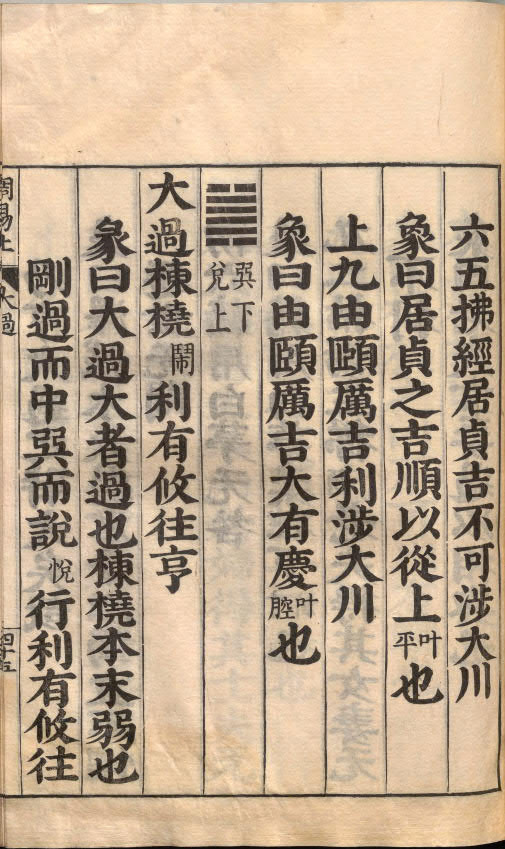 六五拂經居貞吉不可涉大川
象曰居貞之吉順以從上叶平也
上九由頤厲吉利涉大川
象曰由頤厲吉大有慶叶腔也
巽下兌上
大過棟橈鬧利有攸往亨
彖曰大過大者過也棟橈本末弱也
剛過而中巽而說悅行利有攸往
周易上 大過